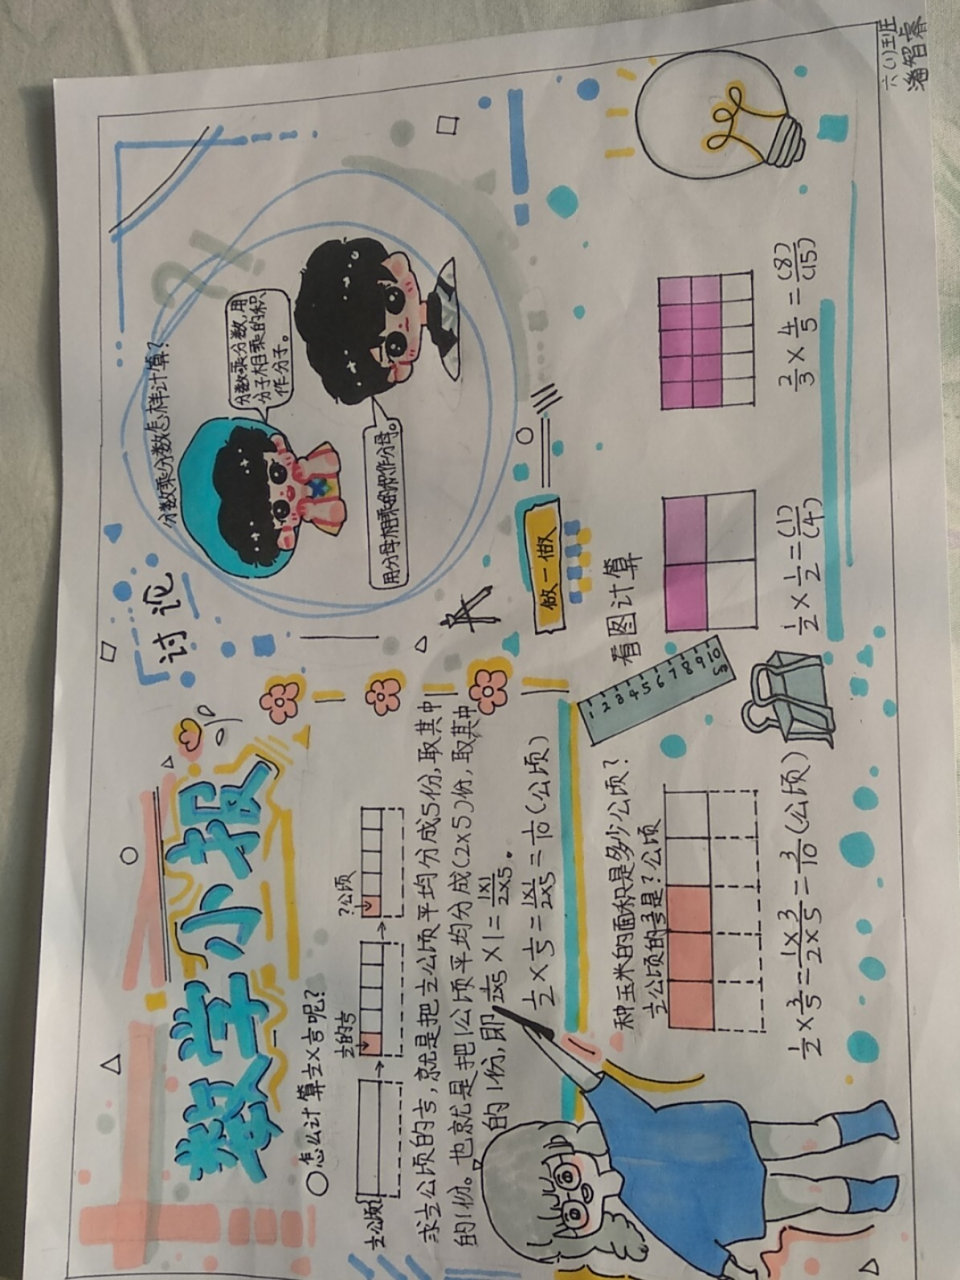 六(1)班
潘智睿
数学小报
○怎么计算½×⅕呢?
½公顷
½的⅕
?公顷
求½公顷的⅕,就是把½公顷平均分成5份,取其中
的1份。也就是把1公顷平均分成(2×5)份,取其中
的1份,即1/2×5 ×1=1×1/2×5。
1/2×1/5=1×1/2×5=1/10(公顷)
种玉米的面积是多少公顷?
½公顷的⅗是?公顷
1/2×3/5=1×3/2×5=3/10(公顷)
讨论
分数乘分数怎样计算?
分数乘分数,用
分子相乘的积
作分子。
用分母相乘的积作分母。
做一做
看图计算
1/2×1/2=(1)/(4)
2/3×4/5=(8)/(15)
1 2 3 4 5 6 7 8 9 10